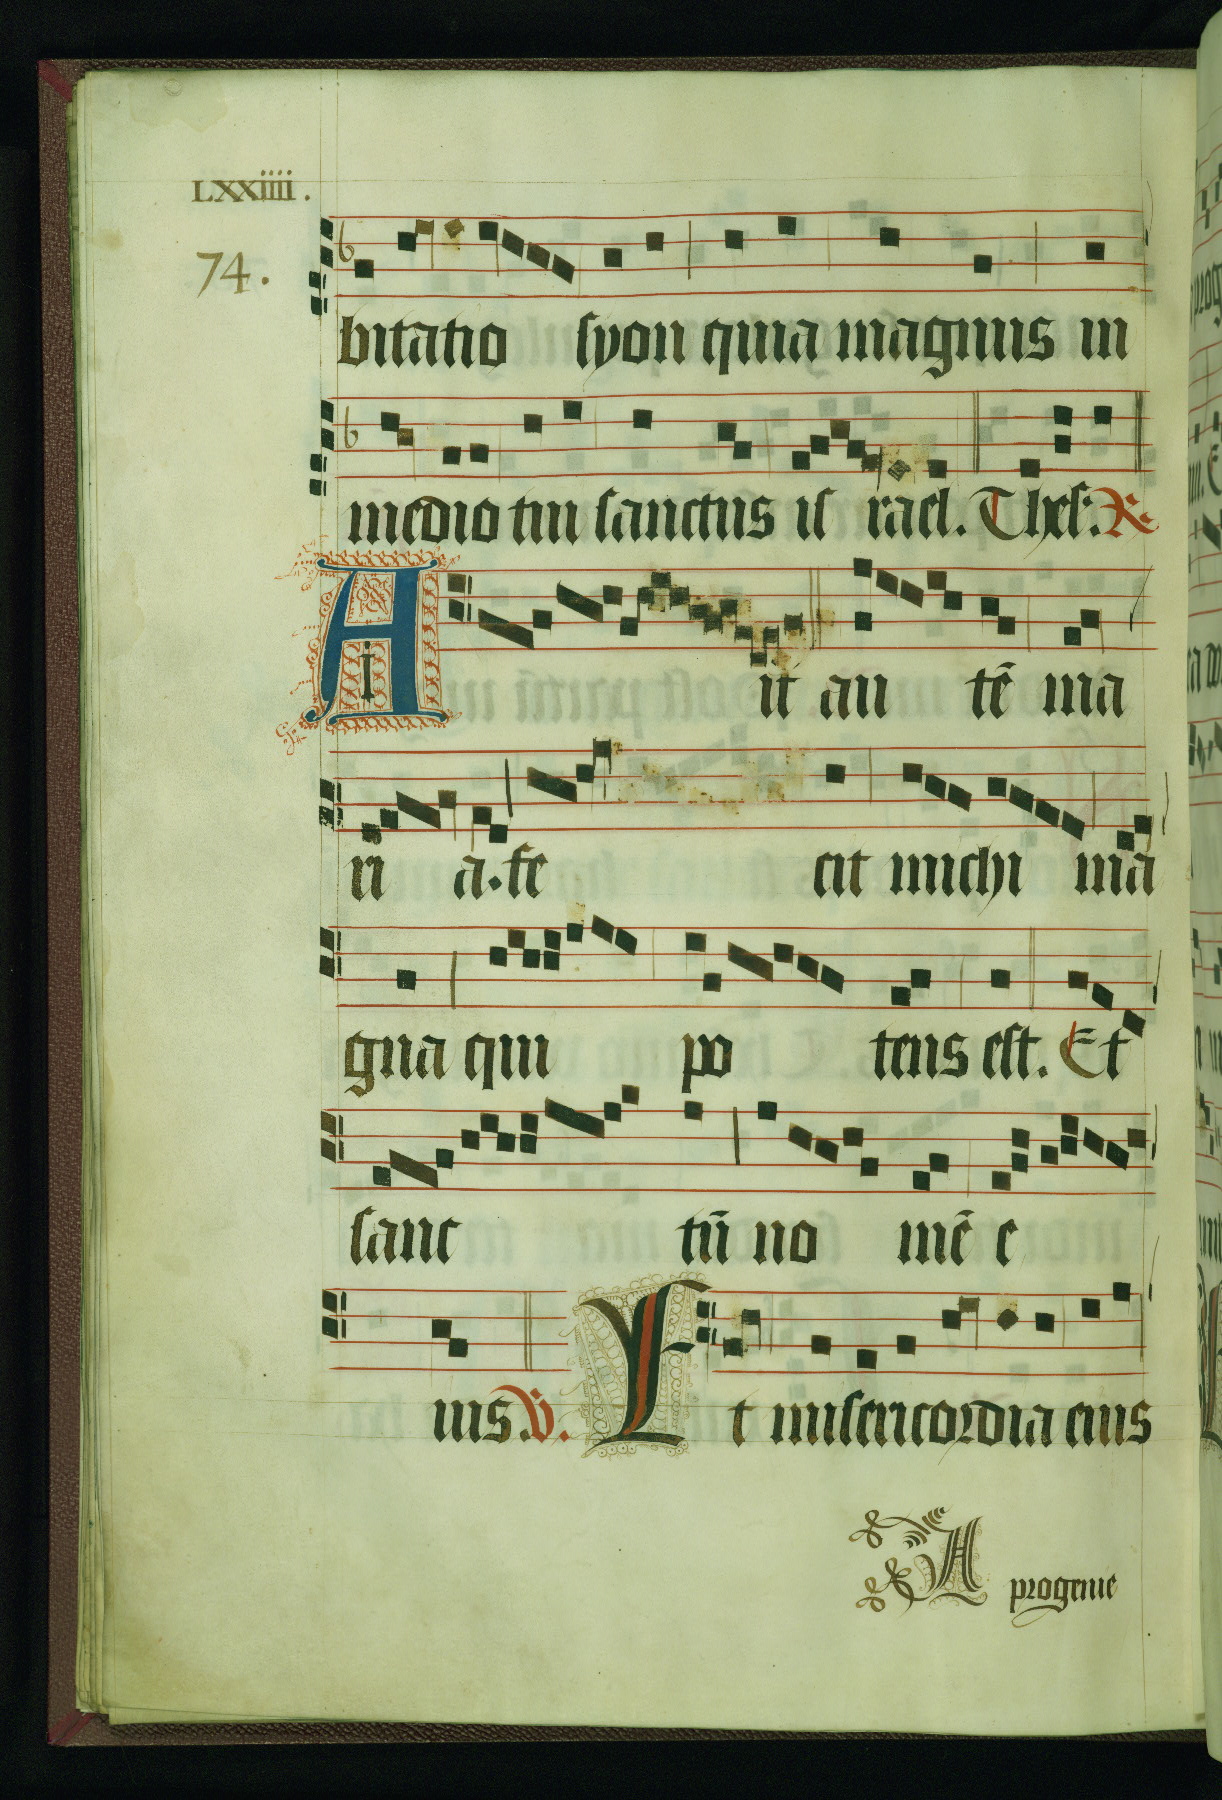 LXXiiii.
74.
bitatio syon quia magnus in
medio tui sanctus is rael. Thes. R
Ait au tē ma
ri a. fe cit michi ma
gna qui po tens est. Et
sanc tū no mē e
ius. V. Et misericordia eius
A progenie